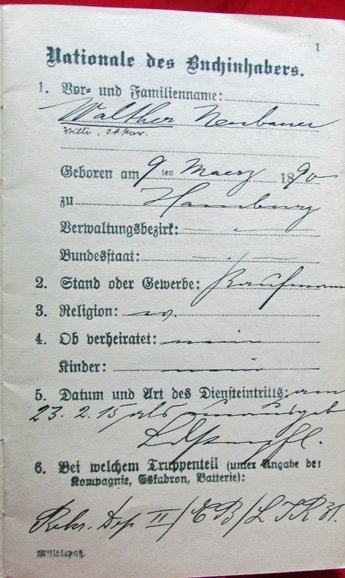 1
Nationale des Buchinhabers.
1. Vor- und Familienname:
Walther Neubauer
Willi,
Geboren am 9ten Maerz 1890
zu Hamburg
Verwaltungsbezirk: -"-
Bundesstaat: -"-
2. Stand oder Gewerbe: Kaufmann
3. Religion: ev.
4. Ob verheiratet: nein
Kinder: nein
5. Datum und Art des Diensteintritts: am
23. 2. 15 als
Ldstpfl.
6. Bei welchem Truppenteil (unter Angabe der
Kompagnie, Eskadron, Batterie):
Rekr. Dep II/EB/L.I.R 31.
Militärpaß.